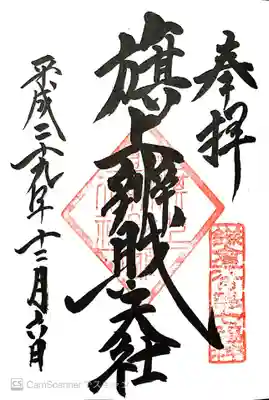 奉拝
旗上辨財天社
平成二十九年十二月六日
CS CamScanner